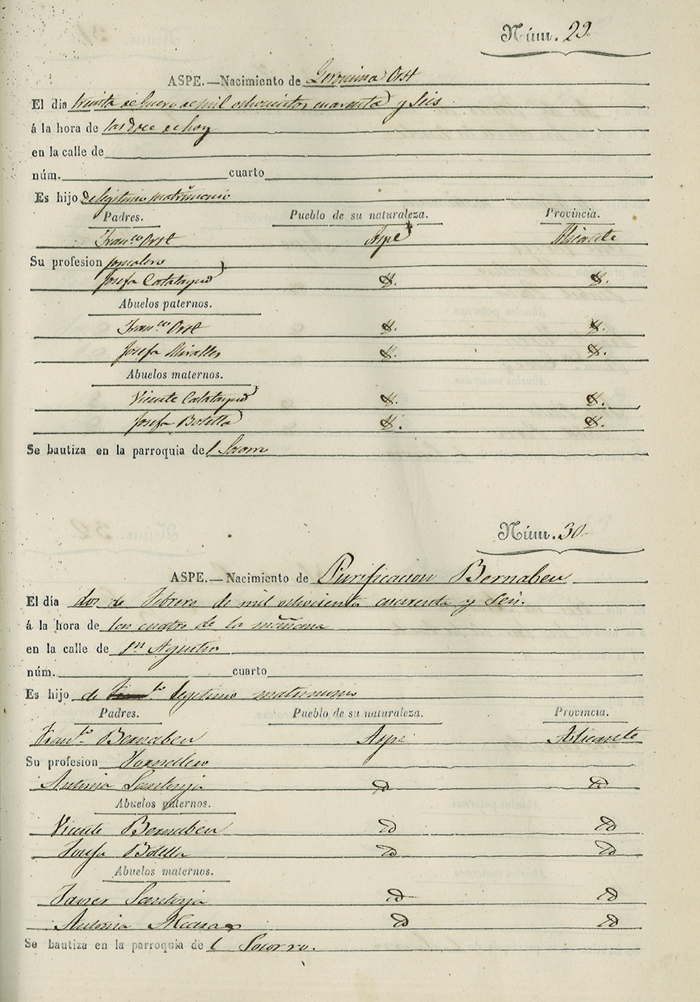 Núm. 29
ASPE.—Nacimiento de Geronima Ort
El dia treinta de Enero de mil ochocientos cuarenta y seis
á la hora de las doce de hoy
en la calle de
núm. cuarto
Es hijo de legitimo matrimonio
Padres. Pueblo de su naturaleza. Provincia.
Fran.co Ort Aspe Alicante
Su profesion jornalero
Josefa Calatayud
Abuelos paternos.
Fran.co Ort
Josefa Miralles
Abuelos maternos.
Vicente Calatayud
Josefa Botella
Se bautiza en la parroquia del Socorro
Núm. 30
ASPE.—Nacimiento de Purificacion Bernabeu
El día dos de Febrero de mil ochocientos cuarenta y seis.
á la hora de las cuatro de la mañana
en la calle de Sn Agustin
núm. cuarto
Es hijo de legitimo matrimonio
Padres. Pueblo de su naturaleza. Provincia.
Fran.co Bernabeu Aspe Alicante
Su profesion Jornalero
Antonia Santonja id id
Abuelos paternos.
Vicente Bernabeu id id
Josefa Botella id id
Abuelos maternos.
Javier Santonja id id
Antonia id id
Se bautiza en la parroquia del Socorro.